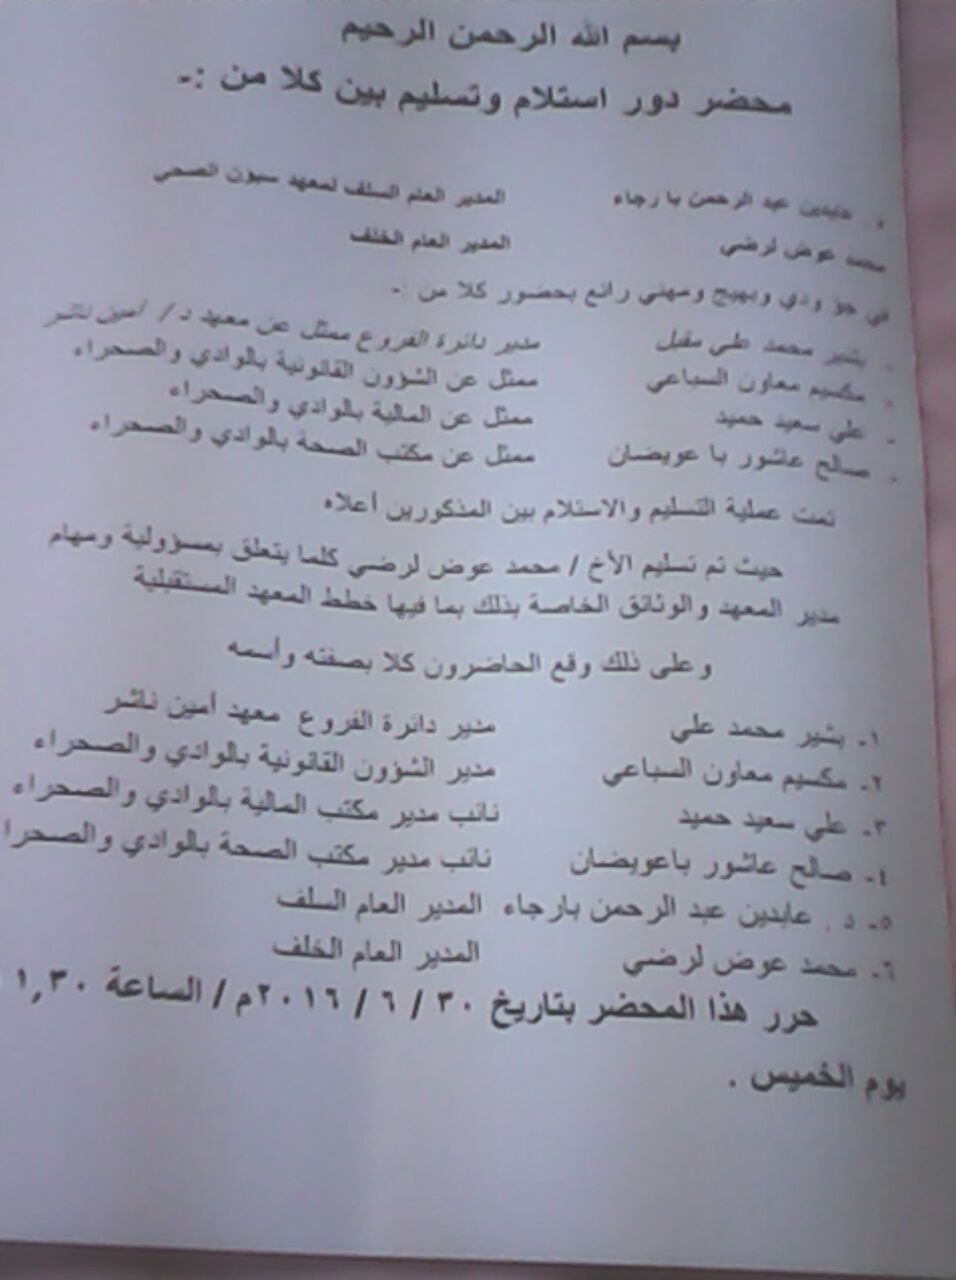 بسم الله الرحمن الرحيم
محضر دور استلام وتسليم بين كلا من :-
د . عابدين عبد الرحمن با رجاء المدير العام السلف لمعهد سيون الصحي
محمد عوض لرضي المدير العام الخلف
في جو ودي وبهيج ومهني رائع بحضور كلا من :-
- بشير محمد علي مقبل مدير دائرة الفروع ممثل عن معهد د / أمين ناشر
- مكسيم معاون السباعي ممثل عن الشؤون القانونية بالوادي والصحراء
- علي سعيد حميد ممثل عن المالية بالوادي والصحراء
- صالح عاشور با عويضان ممثل عن مكتب الصحة بالوادي والصحراء
تمت عملية التسليم والاستلام بين المذكورين أعلاه
حيث تم تسليم الأخ / محمد عوض لرضي كلما يتعلق بمسؤولية ومهام
مدير المعهد والوثائق الخاصة بذلك بما فيها خطط المعهد المستقبلية
وعلى ذلك وقع الحاضرون كلا بصفته وأسمه
١- بشير محمد علي مدير دائرة الفروع معهد أمين ناشر
٢- مكسيم معاون السباعي مدير الشؤون القانونية بالوادي والصحراء
٣- علي سعيد حميد نائب مدير مكتب المالية بالوادي والصحراء
٤- صالح عاشور باعويضان نائب مدير مكتب الصحة بالوادي والصحراء
٥- د . عابدين عبد الرحمن بارجاء المدير العام السلف
٦- محمد عوض لرضي المدير العام الخلف
حرر هذا المحضر بتاريخ ٣٠ / ٦ / ٢٠١٦م / الساعة ١,٣٠
يوم الخميس .